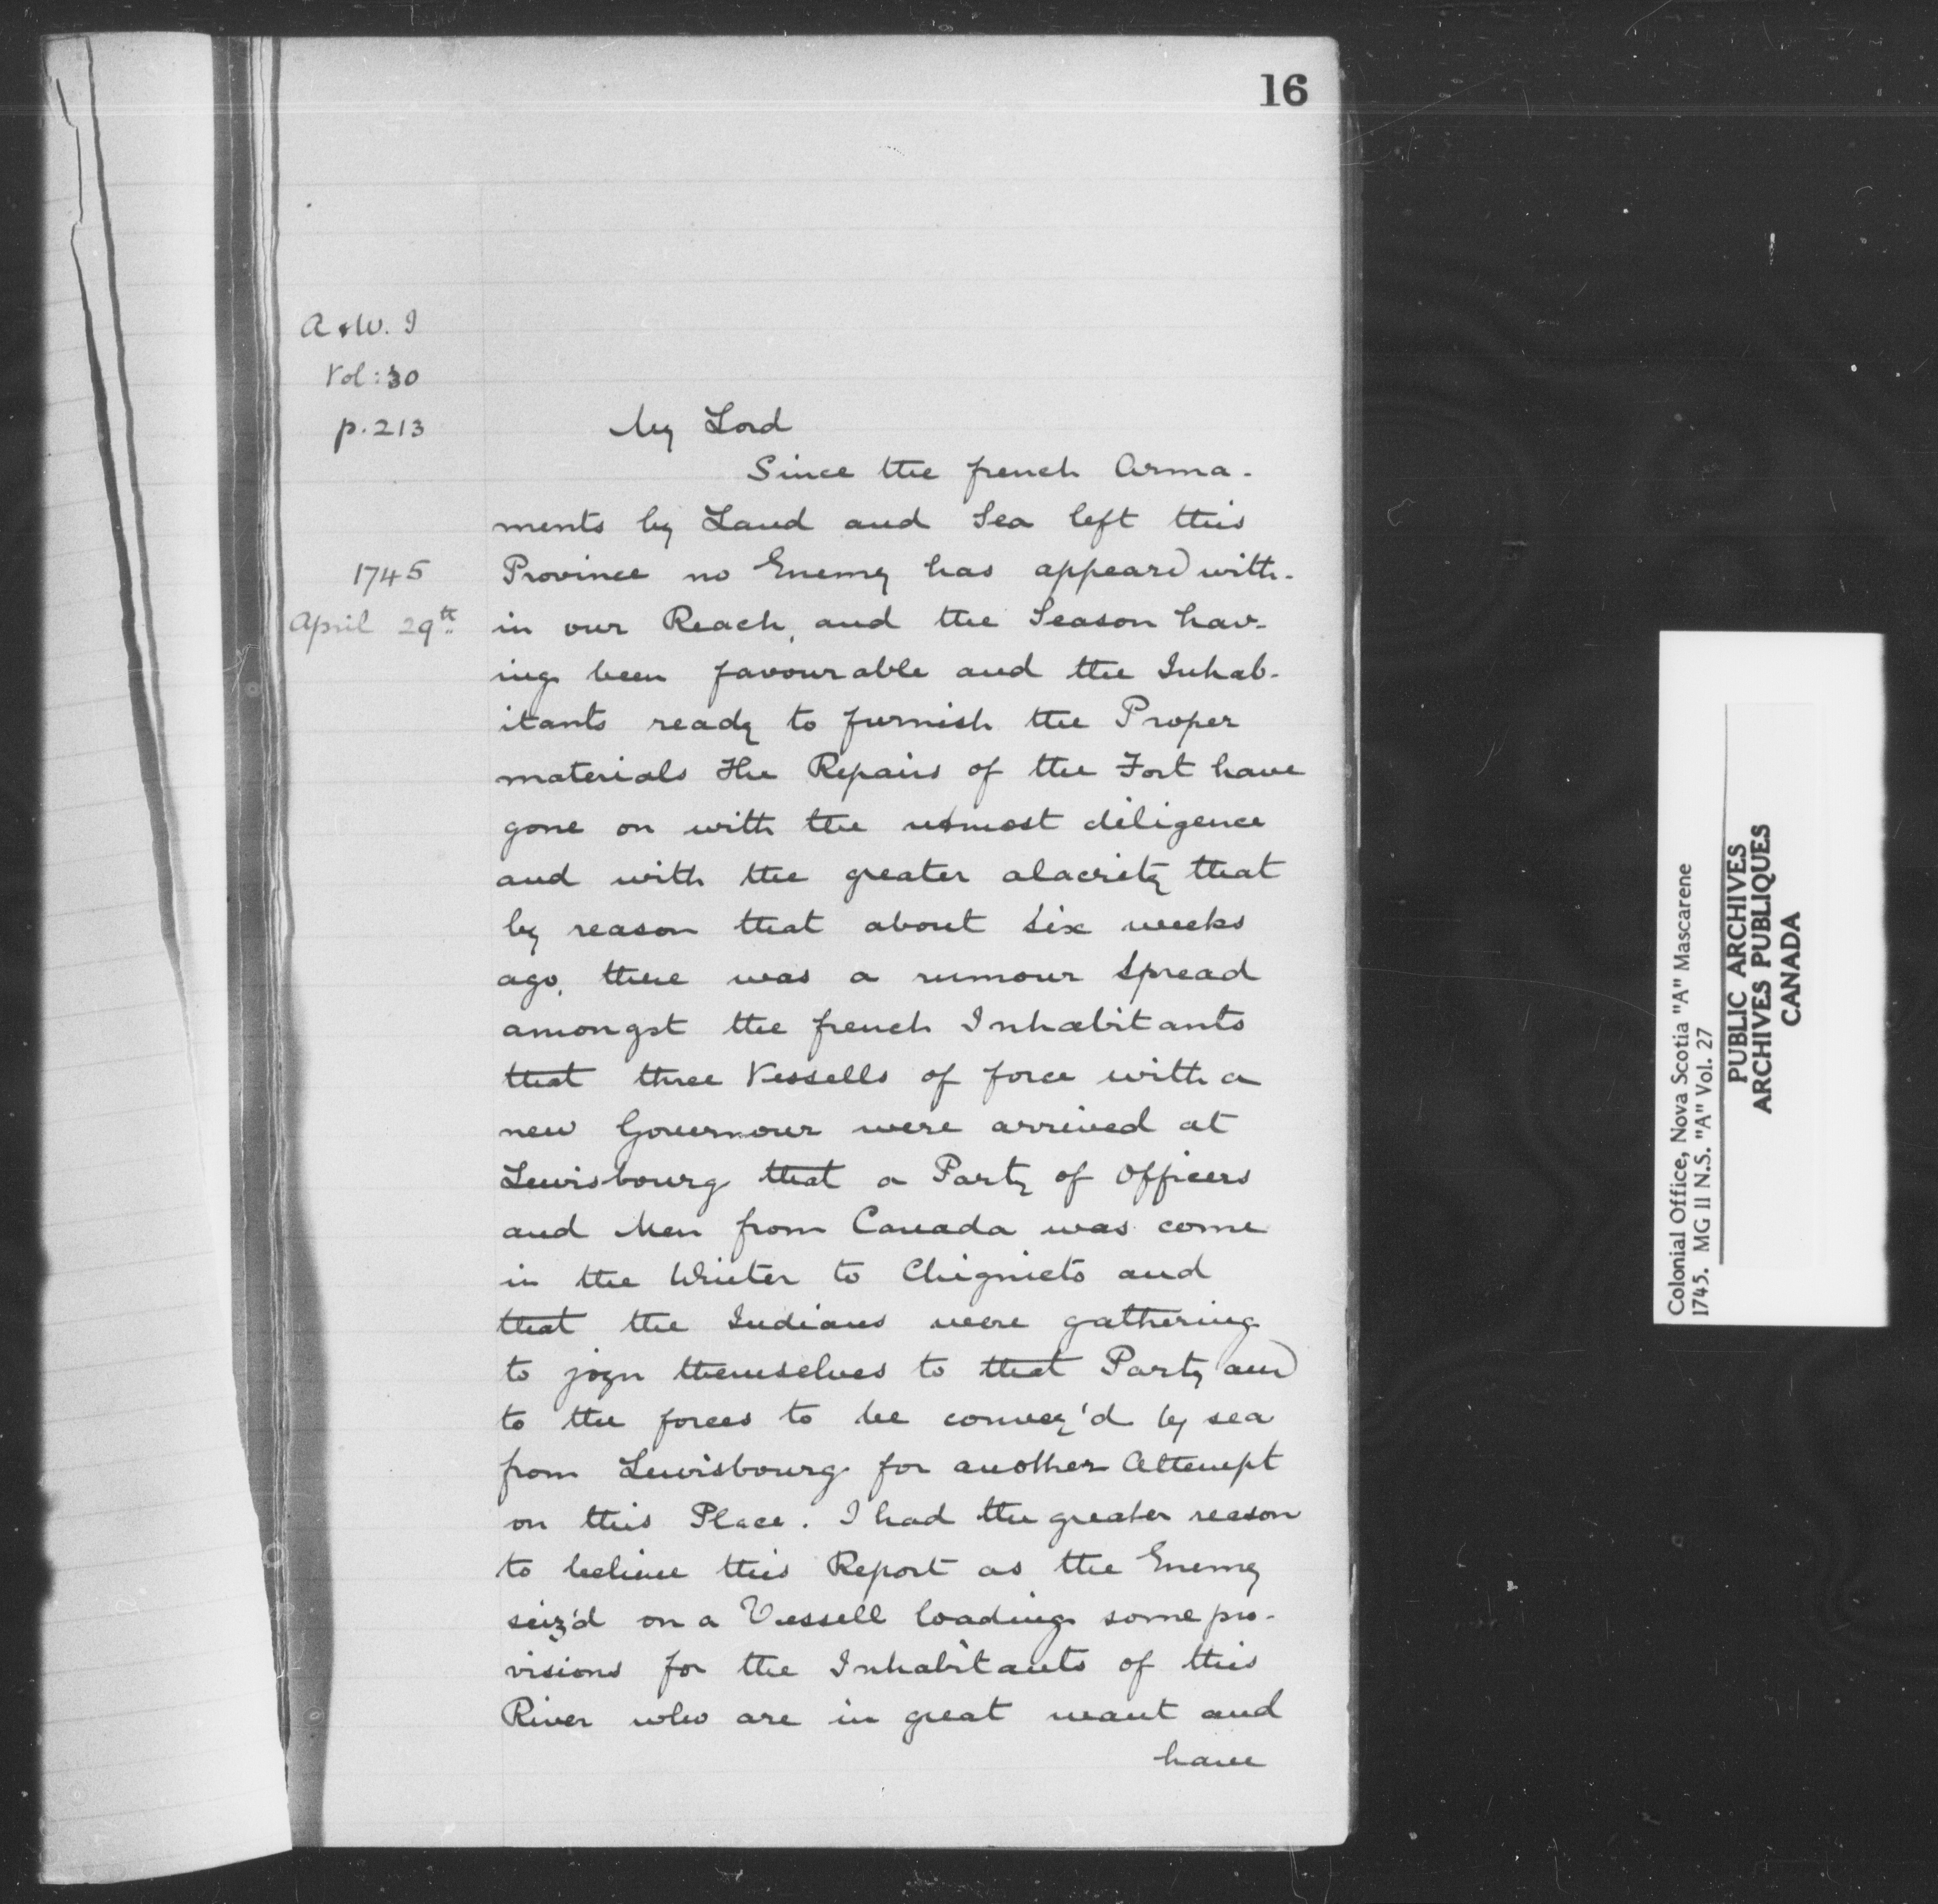 16
A & W. I
Vol: 30
p. 213
1745
April 29th
My Lord
Since the french Arma-
ments by Land and Sea left this
Province no Enemy has appeard with-
in our Reach, and the Season hav-
ing been favourable and the Inhab-
itants ready to furnish the Proper
materials the Repairs of the Fort have
gone on with the utmost diligence
and with the greater alacrity that
by reason that about six weeks
ago, there was a rumour spread
amongst the french Inhabitants
that three Vessells of force with a
new Governour were arrived at
Lewisbourg that a Party of Officers
and Men from Canada was come
in the Winter to Chignicto and
that the Indians were gathering
to joyn themselves to that Party and
to the forces to be convey'd by sea
from Lewisbourg for another Attempt
on this Place. I had the greater reason
to believe this Report as the Enemy
seiz'd on a Vessell loading some pro-
visions for the Inhabitants of this
River who are in great want and
have
Colonial Office, Nova Scotia "A" Mascarene
1745. MG II N.S. "A" Vol. 27
PUBLIC ARCHIVES
ARCHIVES PUBLIQUES
CANADA